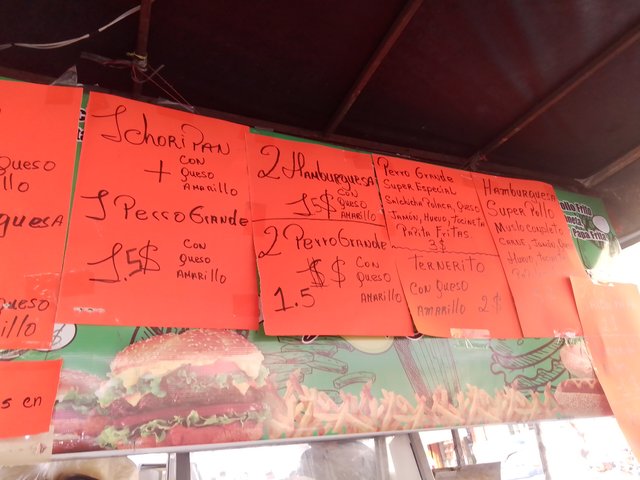 Queso
illo
quesa
Queso
illo
s en
1 ChoriPan
+ con
Queso
Amarillo
1 Perro Grande
1.5$ con
Queso
Amarillo
2 Hamburguesa
1.5$ con
Queso
Amarillo
2 Perro Grande
$ con
Queso
1.5 Amarillo
Perro Grande
Super Especial
Salchicha Polaca, Queso
Jamón, Huevo, Tocineta
Papita Fritas
3$
Ternerito
con Queso
Amarillo 2$
Hamburguesa
Super Pollo
Muslo Completo
Carne, Jamón
Huevo,
Pollo Frito
Papa Frita